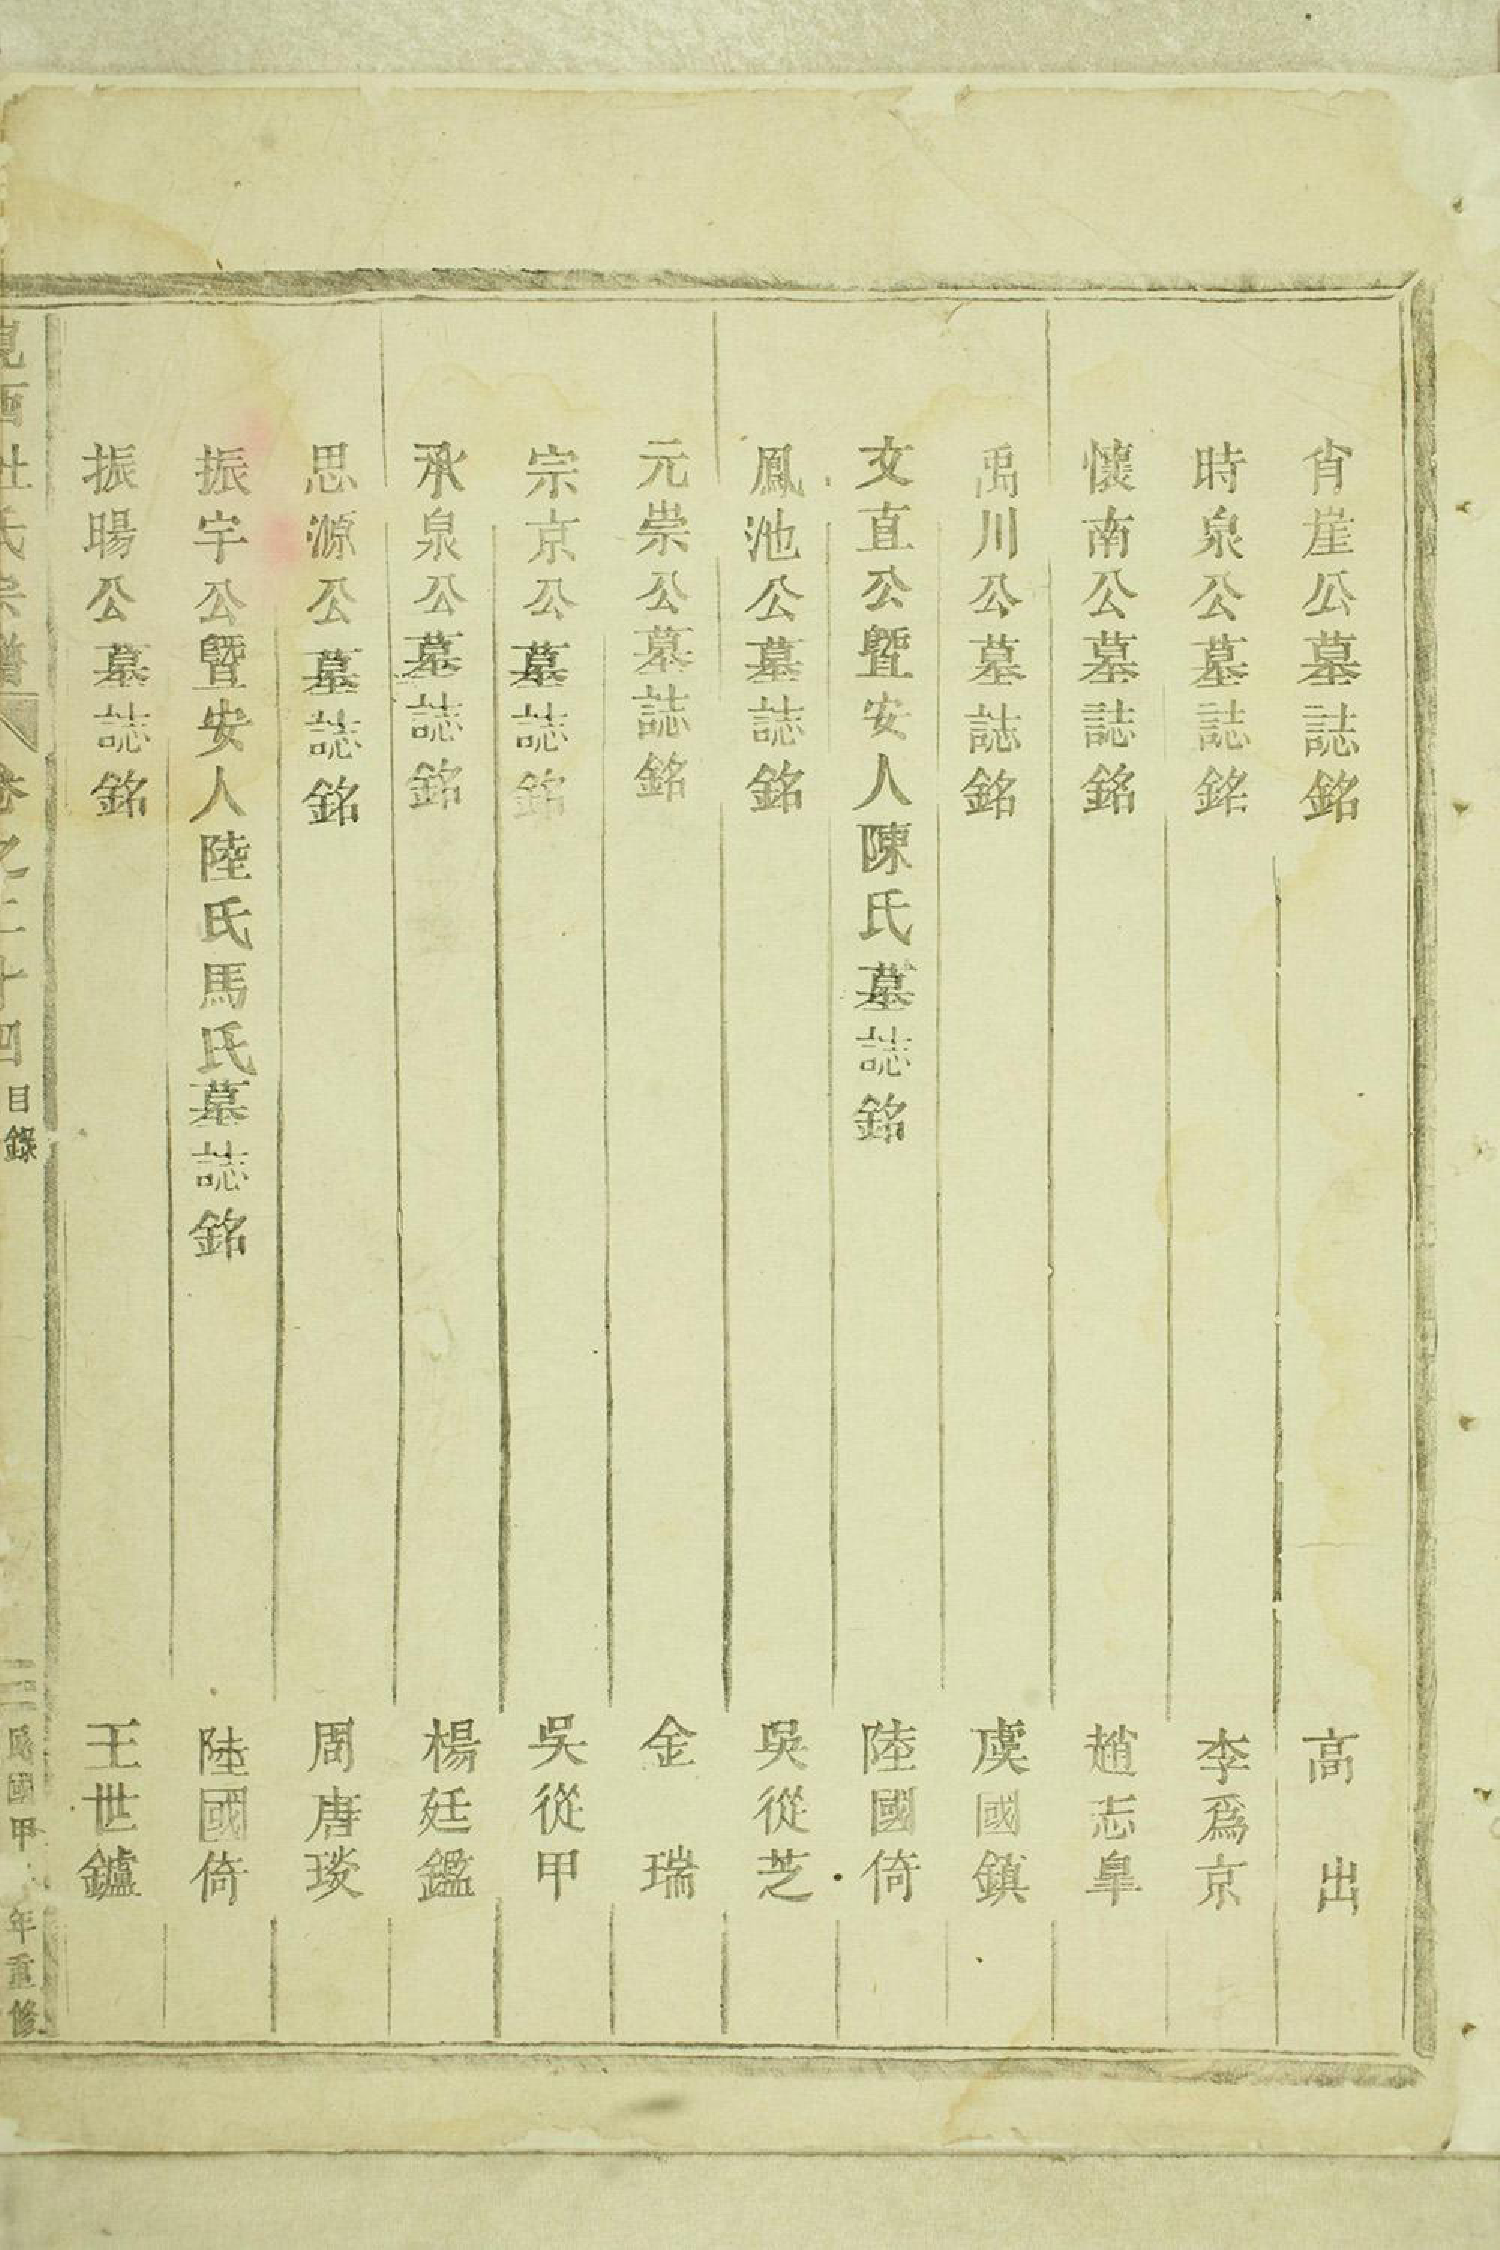 肯崖公墓誌銘 高出
時泉公墓誌銘 李爲京
懷南公墓誌銘 趙志皐
禹川公墓誌銘 虞國鎮
文直公暨安人陳氏墓誌銘 陸國倚
鳳池公墓誌銘 吳從芝
元崇公墓誌銘 金瑞
宗京公墓誌銘 吳從甲
承泉公墓誌銘 楊廷鑑
思源公墓誌銘 周唐琰
振宇公暨安人陸氏馬氏墓誌銘 陸國倚
振暘公墓誌銘 王世鑪
杜氏宗譜 卷之二十四 目錄 二 民國甲年重修